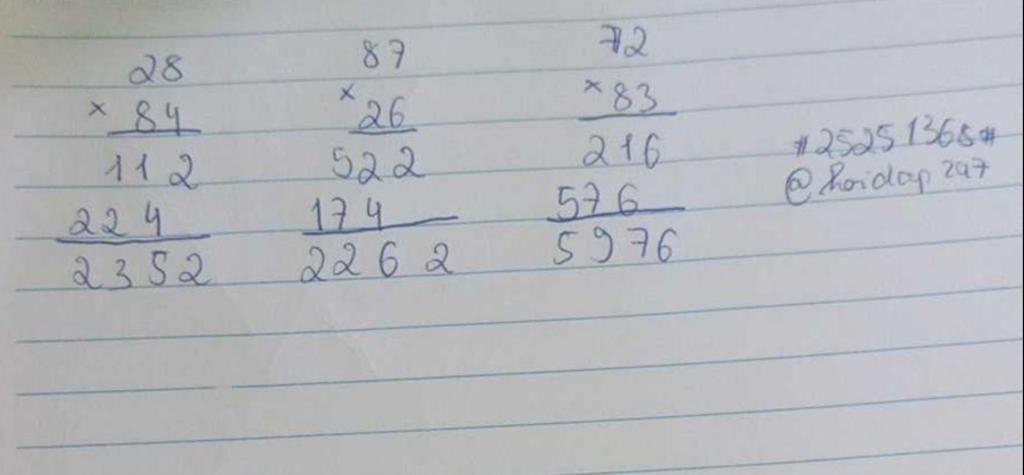 28
× 84
112
224
2352
87
× 26
522
174
2262
72
× 83
216
576
5976
#25251368#
@hoidap247